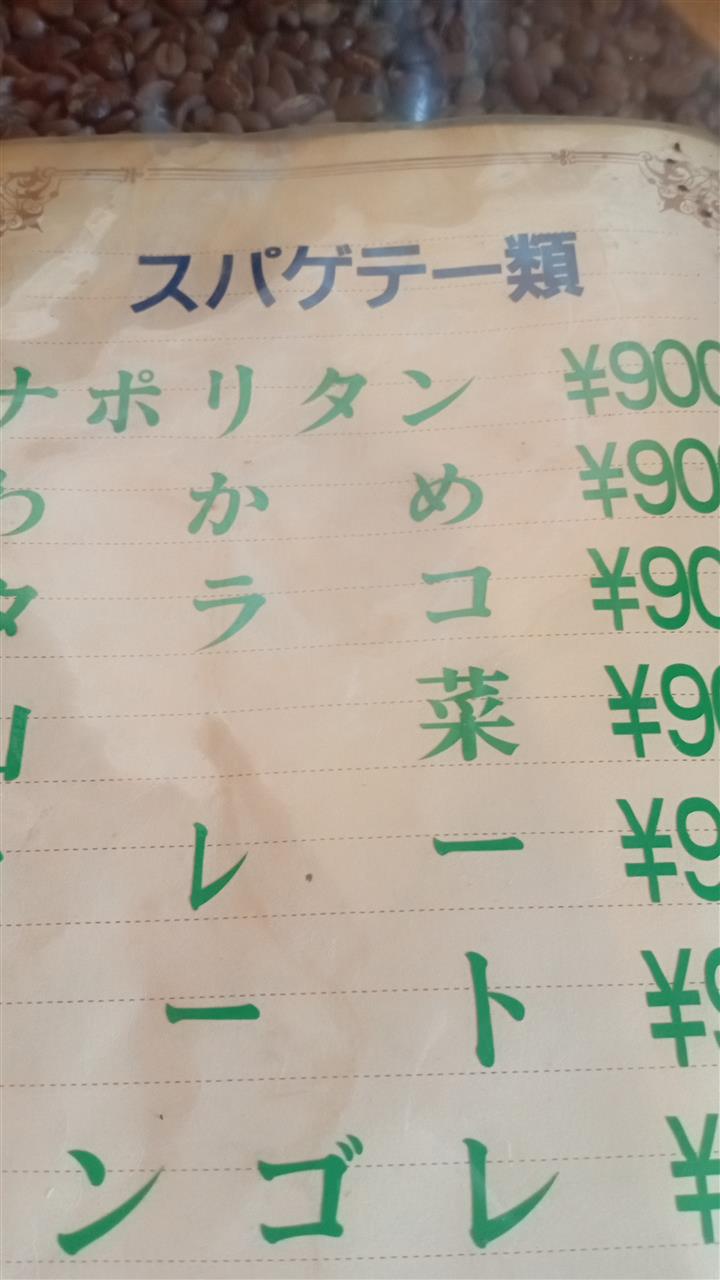 スパゲテー類
ナポリタン ¥900
わかめ ¥900
タラコ ¥90
山菜 ¥90
レー ¥9
ート ¥9
ンゴレ ¥